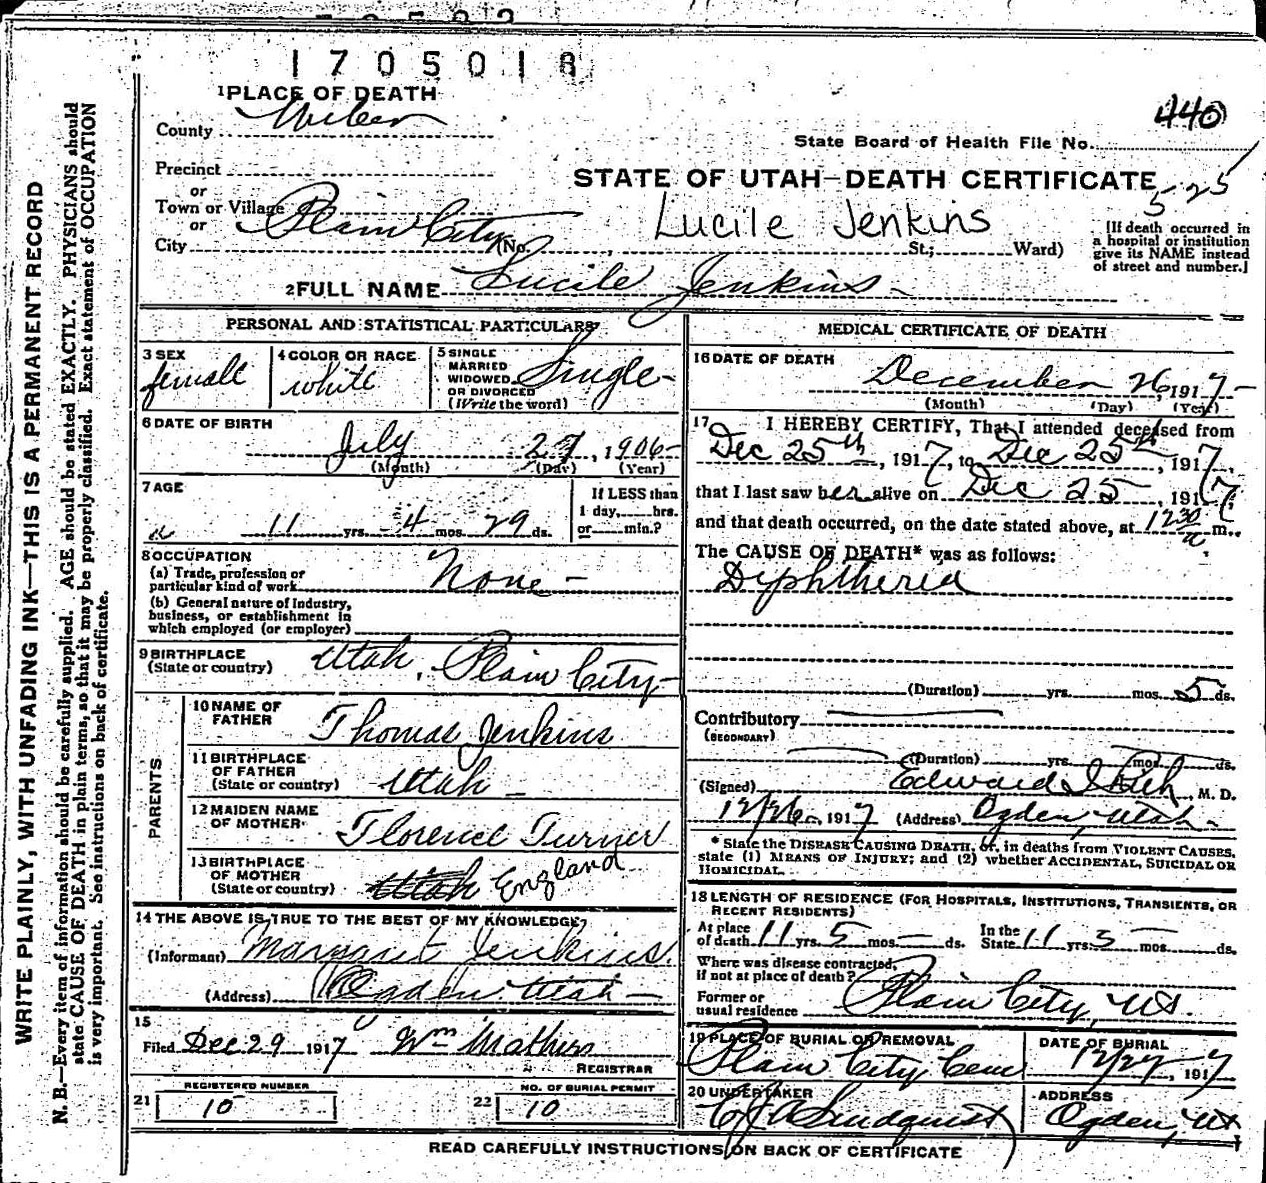 1705018
1 PLACE OF DEATH
County Weber
440
State Board of Health File No.
Precinct
or
STATE OF UTAH—DEATH CERTIFICATE
5-25
Town or Village Plain City
or
Lucile Jenkins
City (No. , St.; Ward)
[If death occurred in
a hospital or institution
give its NAME instead
of street and number.]
2 FULL NAME Lucile Jenkins
PERSONAL AND STATISTICAL PARTICULARS
3 SEX
female
4 COLOR OR RACE
white
5 SINGLE
MARRIED
WIDOWED
OR DIVORCED
(Write the word)
Single
6 DATE OF BIRTH
July 27, 1906
(Month) (Day) (Year)
7 AGE
11 yrs. 4 mos. 29 ds.
If LESS than
1 day, hrs.
or min.?
8 OCCUPATION
(a) Trade, profession or
particular kind of work None
(b) General nature of Industry,
business, or establishment in
which employed (or employer)
9 BIRTHPLACE
(State or country) Utah, Plain City
PARENTS
10 NAME OF
FATHER Thomas Jenkins
11 BIRTHPLACE
OF FATHER
(State or country) Utah
12 MAIDEN NAME
OF MOTHER Florence Turner
13 BIRTHPLACE
OF MOTHER
(State or country) Utah England
14 THE ABOVE IS TRUE TO THE BEST OF MY KNOWLEDGE
(Informant) Margaret Jenkins
(Address) Ogden Utah
15
Filed Dec 29 1917 Wm Mathies
REGISTRAR
REGISTERED NUMBER
21 10
NO. OF BURIAL PERMIT
22 10
MEDICAL CERTIFICATE OF DEATH
16 DATE OF DEATH
December 26, 1917
(Month) (Day) (Year)
17 I HEREBY CERTIFY, That I attended deceased from
Dec 25th, 1917, to Dec 25th, 1917,
that I last saw her alive on Dec 25, 1917,
and that death occurred, on the date stated above, at 1230 a m.
The CAUSE OF DEATH* was as follows:
Dyphtheria
(Duration) yrs. mos. 5 ds.
Contributory
(SECONDARY)
(Duration) yrs. mos. ds.
(Signed) Edward I Rich, M. D.
12/26, 1917 (Address) Ogden, Utah
* State the DISEASE CAUSING DEATH, or, in deaths from VIOLENT CAUSES,
state (1) MEANS OF INJURY; and (2) whether ACCIDENTAL, SUICIDAL OR
HOMICIDAL.
18 LENGTH OF RESIDENCE (FOR HOSPITALS, INSTITUTIONS, TRANSIENTS, OR
RECENT RESIDENTS)
At place
of death 11 yrs. 5 mos. ds.
In the
State 11 yrs. 5 mos. ds.
Where was disease contracted,
if not at place of death?
Former or
usual residence Plain City, Ut.
19 PLACE OF BURIAL OR REMOVAL
Plain City Cem
DATE OF BURIAL
12/27, 1917
20 UNDERTAKER
C J A Lindquist
ADDRESS
Ogden, Ut
READ CAREFULLY INSTRUCTIONS ON BACK OF CERTIFICATE
WRITE PLAINLY, WITH UNFADING INK—THIS IS A PERMANENT RECORD
N. B.—Every item of information should be carefully supplied. AGE should be stated EXACTLY. PHYSICIANS should
state CAUSE OF DEATH in plain terms, so that it may be properly classified. Exact statement of OCCUPATION
is very important. See instructions on back of certificate.